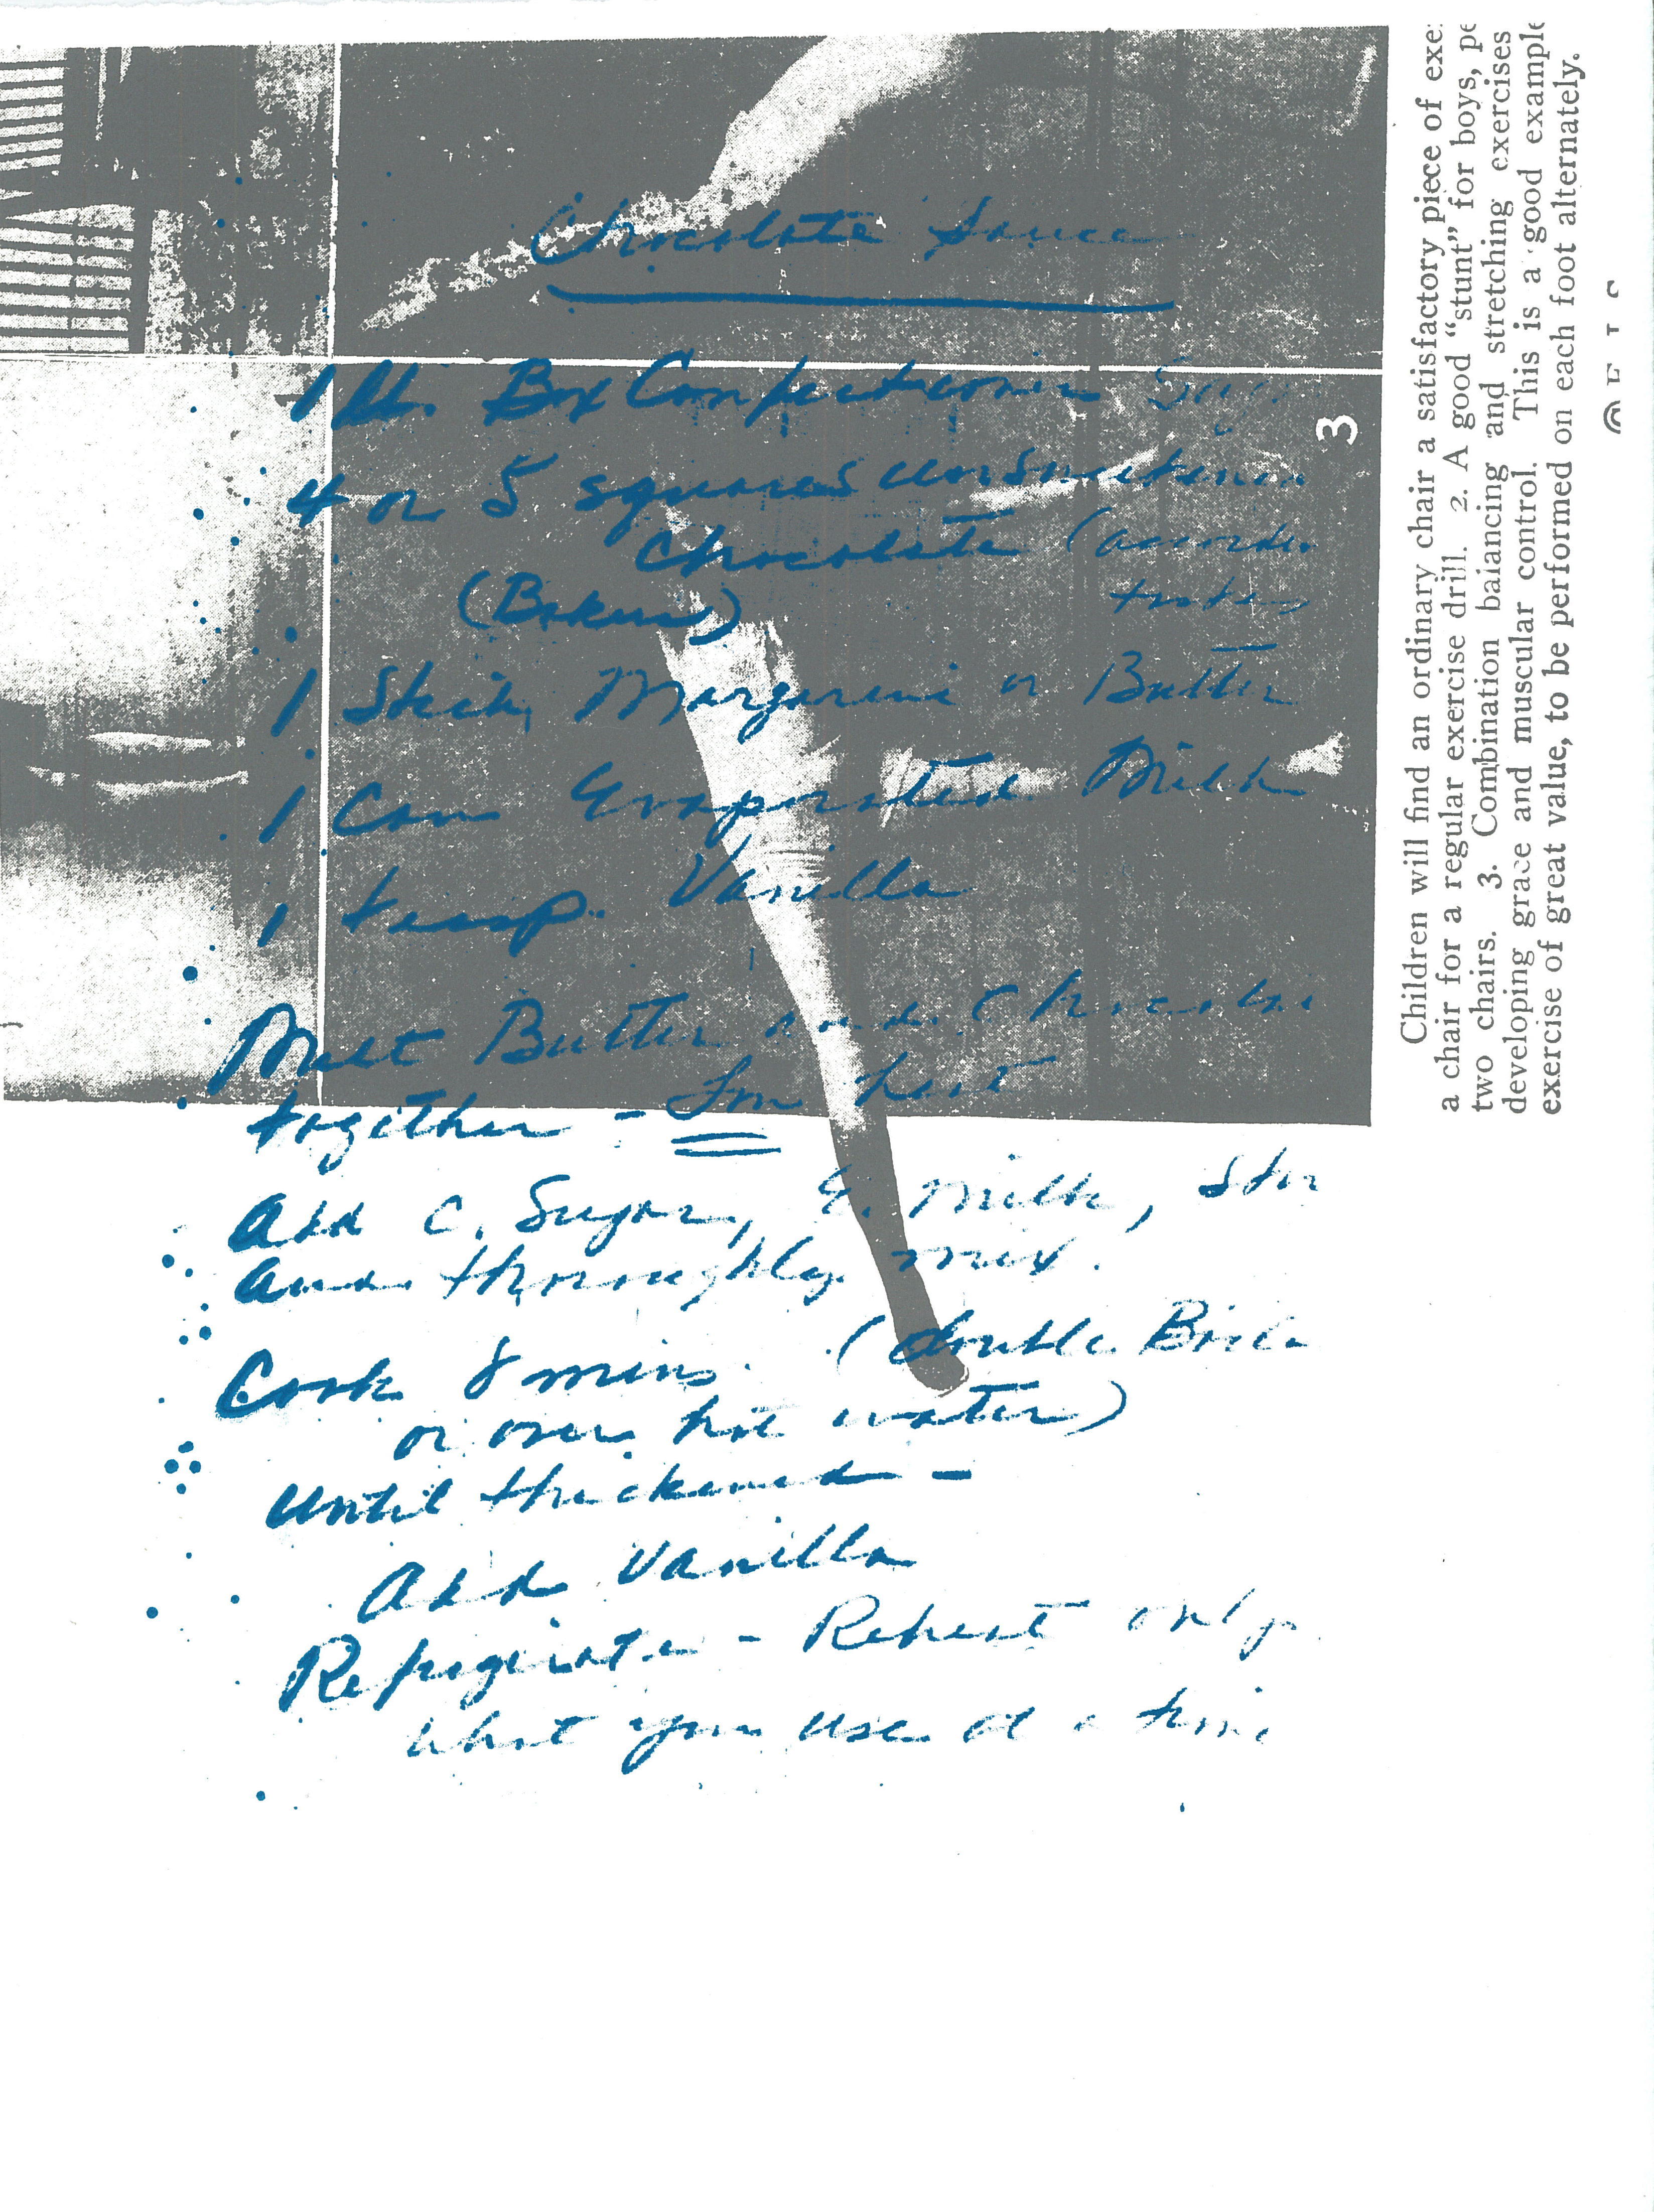 Chocolate Sauce
1 lb. Box Confectioners Sug
4 or 5 squares unsweetened
Chocolate (accordin
(Bakers) taste
1 Stick Margarine or Butter
1 Can Evaporated Milk
1 teasp. Vanilla
Melt Butter and Chocolate
together - Low heat
Add C. Sugar, E. Milk, Stir
and thoroughly mix.
Cook 8 mins. (double Boile
or over hot water)
until thickened -
Add Vanilla
Refrigerate - Reheat only
what you use at a time
3
Children will find an ordinary chair a satisfactory piece of exe
a chair for a regular exercise drill. 2. A good “stunt” for boys, pe
two chairs. 3. Combination balancing and stretching exercises
developing grace and muscular control. This is a good example
exercise of great value, to be performed on each foot alternately.